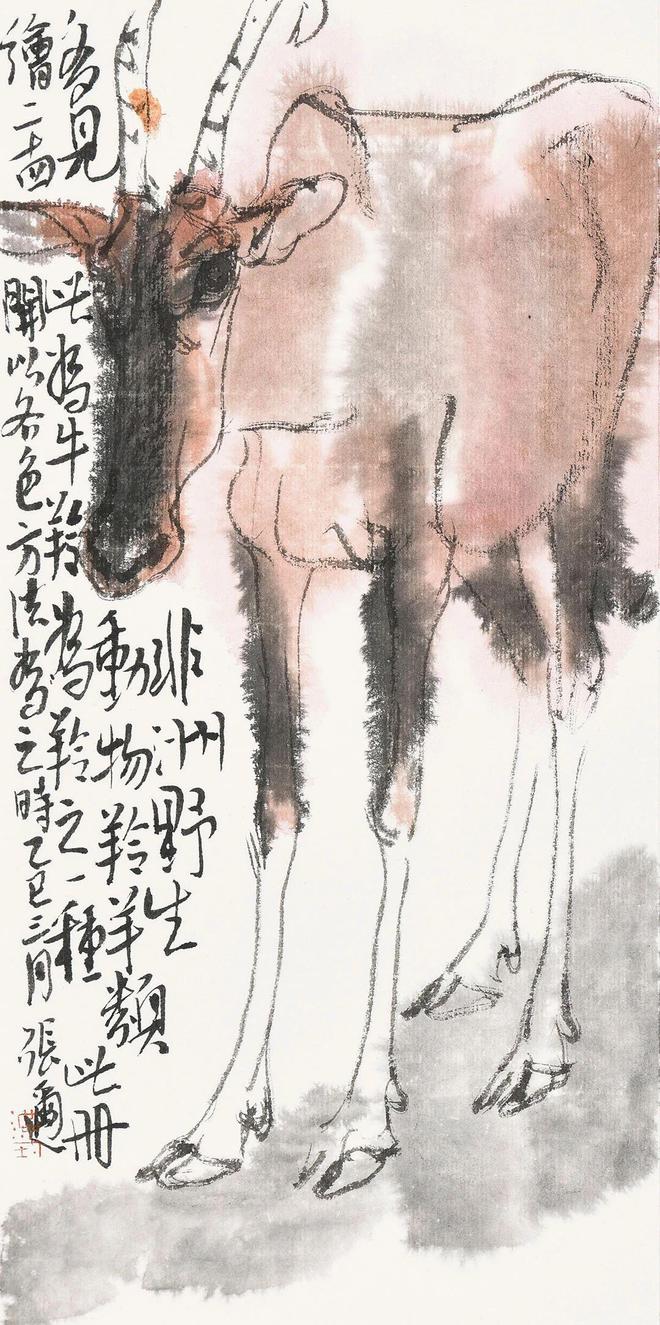 非洲野生
動物羚羊類
多見此為牛羚為羚之一種此冊
繪二十四開以各色方法為之時乙巳三月張